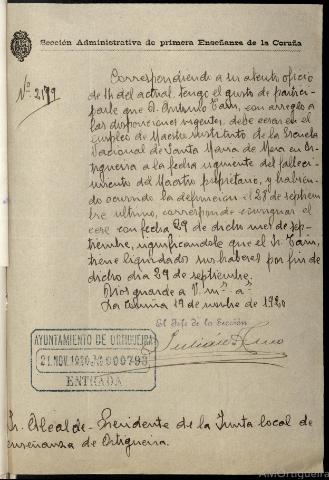 Sección Administrativa de primera Enseñanza de la Coruña
Nº 2199
Correspondiendo a su atento oficio
de 14 del actual, tengo el gusto de partici-
parle que D. Antonio Tam, con arreglo a
las disposiciones vigentes, debe cesar en el
empleo de Maestro sustituto de la Escuela
Nacional de Santa Maria de Mera en Or-
tigueira a la fecha siguiente del falleci-
miento del Maestro propietario, y habién-
do ocurrido la defunción el 28 de septiem-
bre último, corresponde consignar el
cese con fecha 29 de dicho mes de sep-
tiembre, significandole que el Sr. Tam,
tiene liquidados sus haberes por fin de
dicho dia 29 de septiembre.
Dios guarde a V. mˢ aˢ
La Coruña 19 de novbre de 1920
El Jefe de la Sección
AYUNTAMIENTO DE ORTIGUEIRA
21. NOV. 1920 000793
ENTRADA
Sr. Alcalde-Presidente de la Junta local de
enseñanza de Ortigueira.
AMOrtigueira